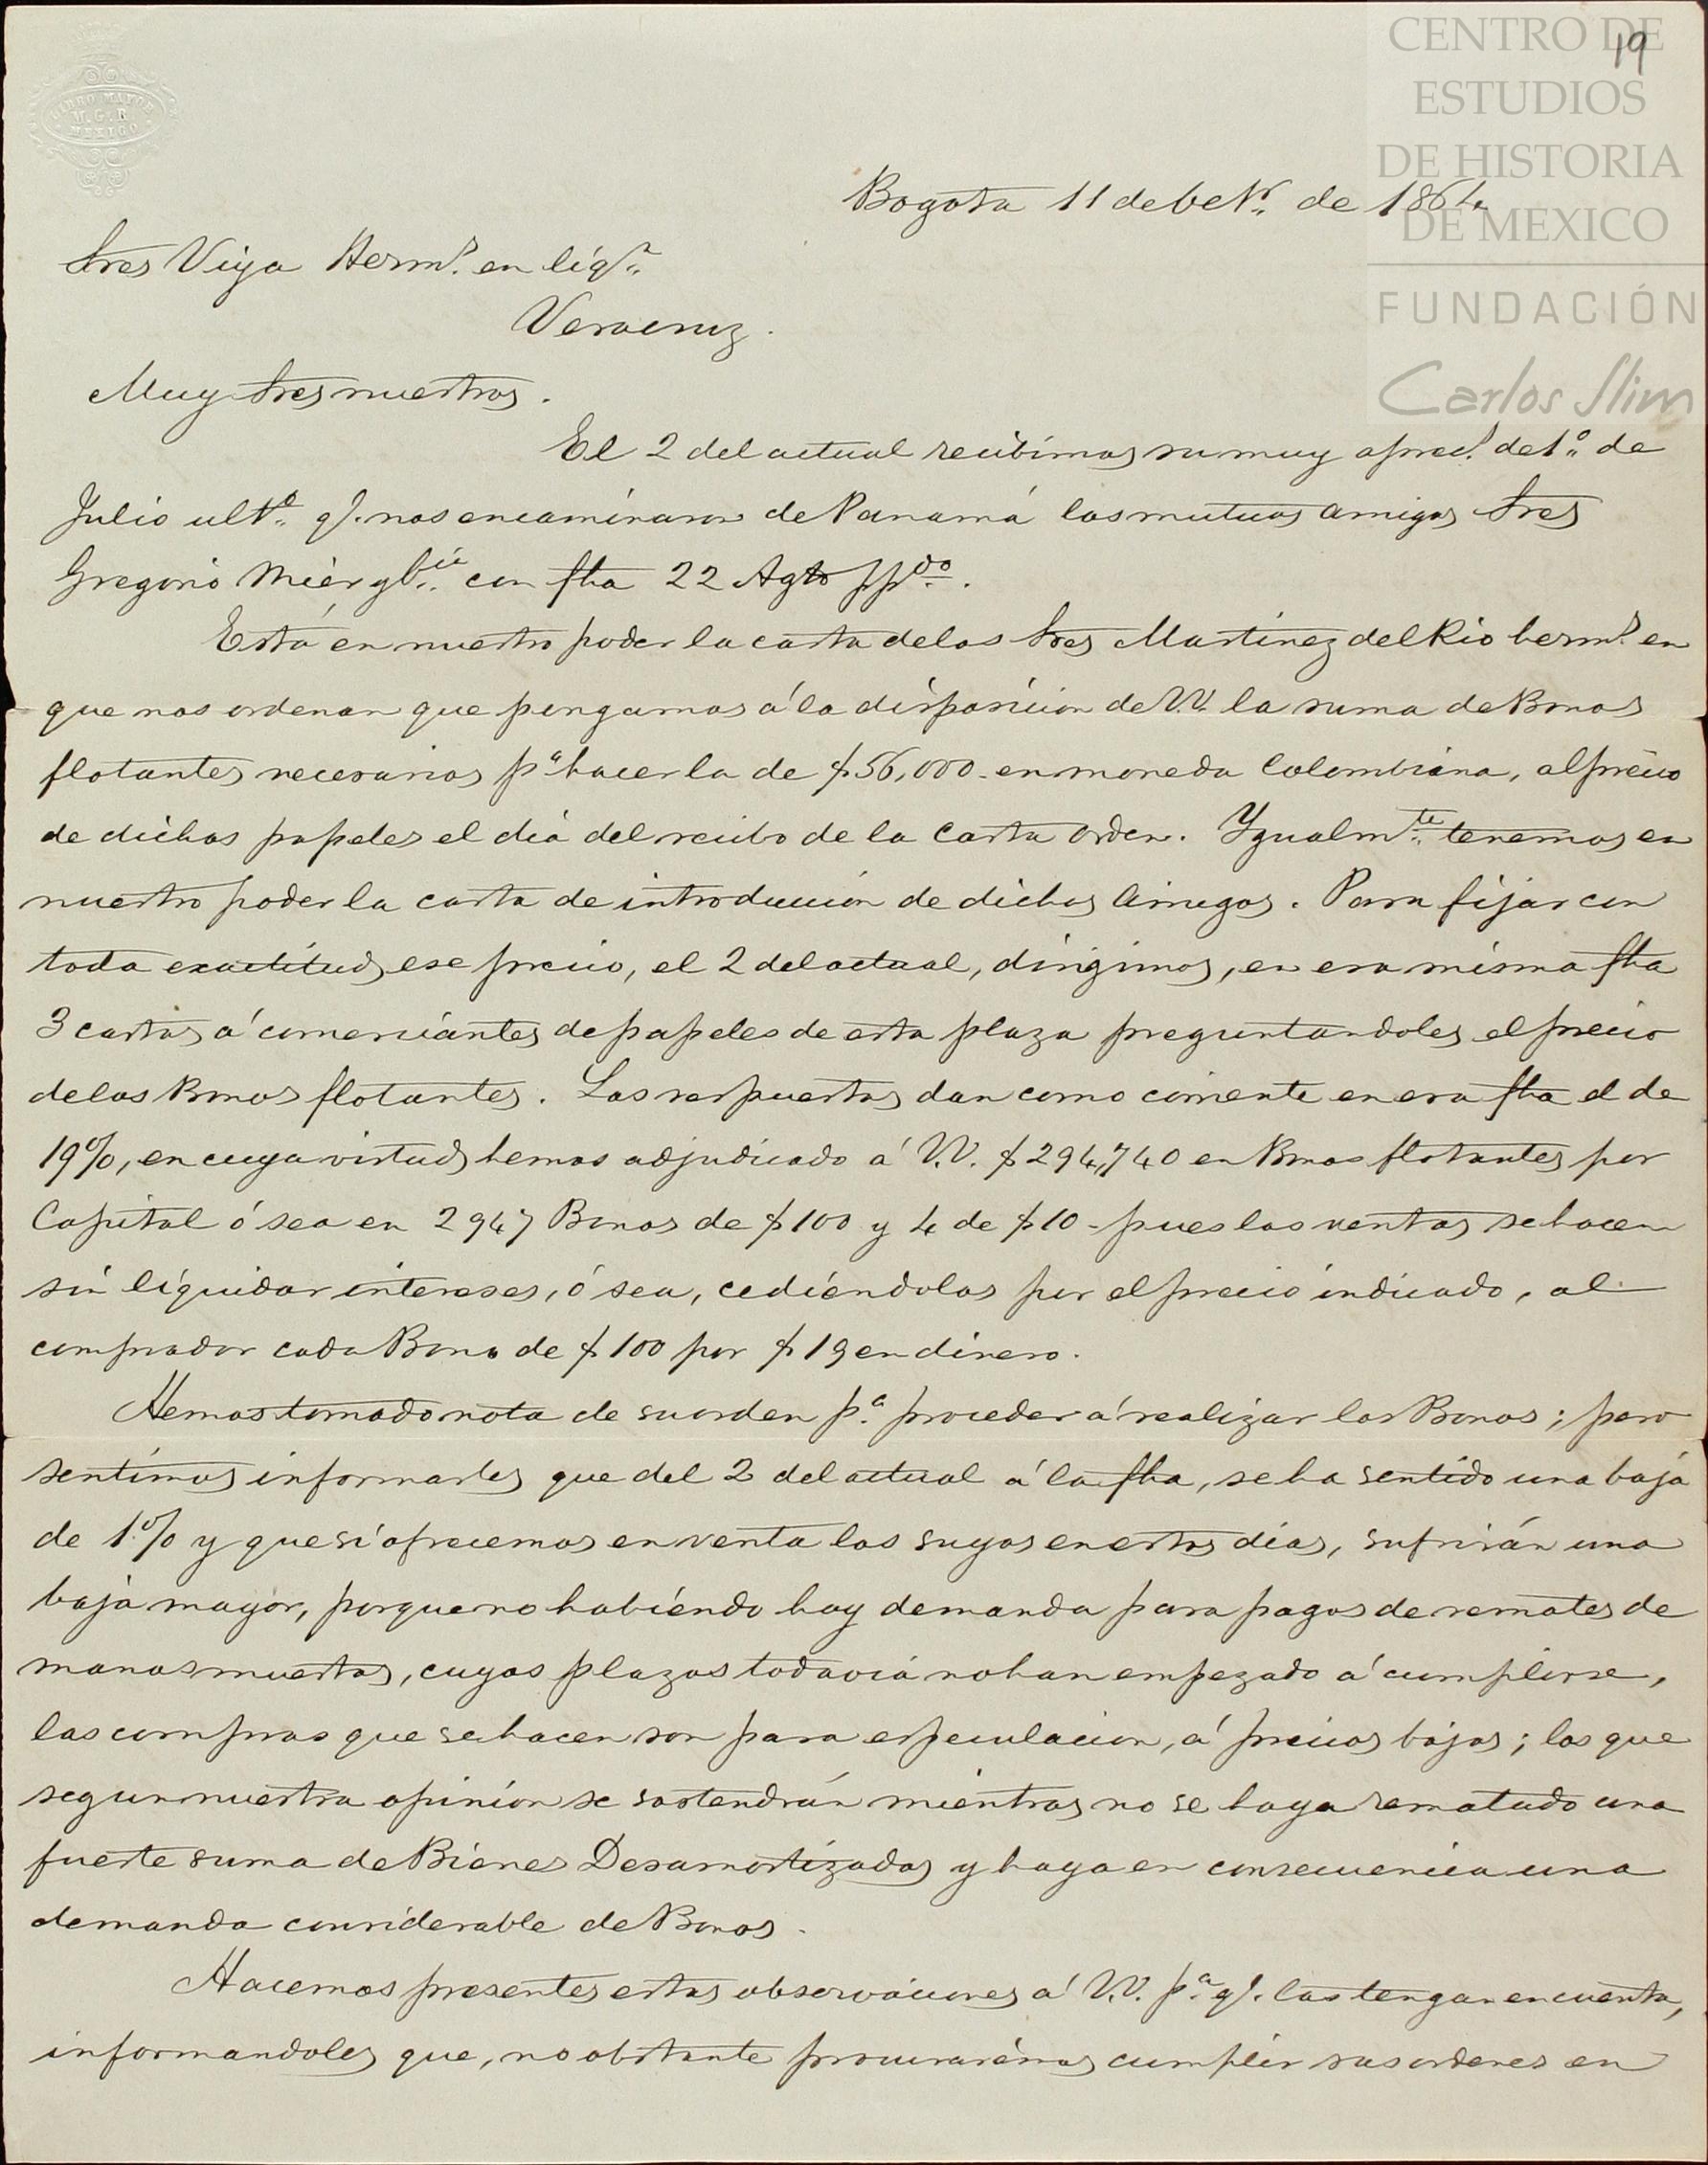 CENTRO DE
ESTUDIOS
DE HISTORIA
DE MEXICO
FUNDACIÓN
Carlos Slim
19
LIBRO MAYOR
M.G.R.
MEXICO
Bogota 11 de 6 de 1864
Sres Viya Herm.s en liq.n
Veracruz.
Muy Sres nuestros.
El 2 del actual recibimos su muy aprec.l de 1.o de
Julio ult.o q.e nos encaminaron de Panamá los mutuos amigos Sres
Gregorio Miér y C.ia con fha 22 Agto pp.do.
Está en nuestro poder la carta de los Sres Martinez del Rio herm.s en
que nos ordenan que pongamos á la disposicion de VV. la suma de Bonos
flotantes necesarios p.a hacer la de $56,000- en moneda Colombiana, al precio
de dichos papeles el dia del recibo de la Carta Orden. Ygualm.te tenemos en
nuestro poder la carta de introduccion de dichos Amigos. Para fijar con
toda exactitud ese precio, el 2 del actual, dirigimos, en esa misma fha
3 cartas á comerciantes de papeles de esta plaza preguntandoles el precio
de los Bonos flotantes. Las respuestas dan como corriente en esa fha el de
19%, en cuya virtud hemos adjudicado á V.V. $294,740 en Bonos flotantes por
Capital ó sea en 2947 Bonos de $100 y 4 de $10- pues las ventas se hacen
sin liquidar intereses, ó sea, cediéndolos por el precio indicado, al
comprador cada Bono de $100 por $19 en dinero.
Hemos tomado nota de su orden p.a proceder á realizar los Bonos; pero
sentimos informarles que del 2 del actual á la fha, se ha sentido una baja
de 1% y que si ofrecemos en venta los suyos en estos dias, sufrirán una
baja mayor, porque no habiendo hoy demanda para pagos de remates de
manos muertas, cuyos plazos todavia no han empezado á cumplirse,
las compras que se hacen son para especulacion, á precios bajos; los que
segun nuestra opinion se sostendrán mientras no se haya rematado una
fuerte suma de Bienes Desamortizados y haya en consecuencia una
demanda considerable de Bonos.
Hacemos presentes estas observaciones á V.V. p.a q.e las tengan en cuenta,
informandoles que, no obstante procurarémos cumplir sus ordenes en